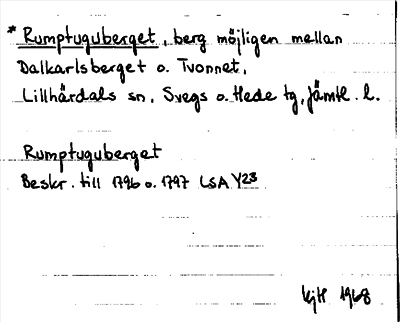 * Rumptuguberget, berg möjligen mellan
Dalkarlsberget o. Tvonnet,
Lillhärdals sn, Svegs o. Hede tg, Jämtl. l.
Rumptuguberget
Beskr. till 1796 o. 1797 LSA Y23
1968